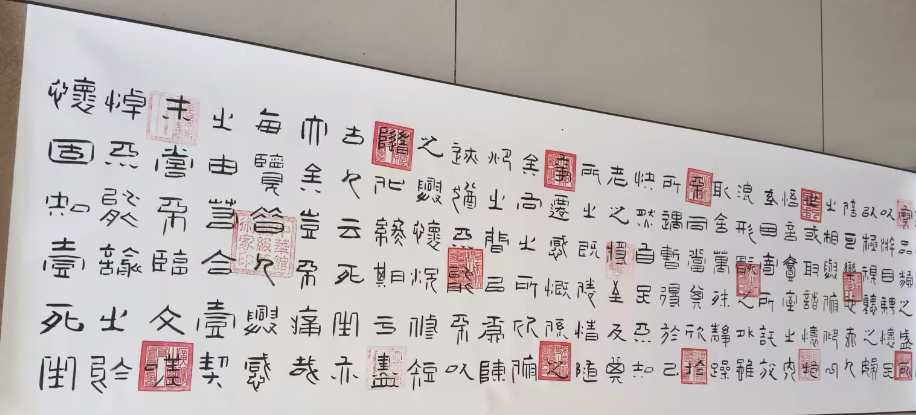 品類之盛所
以遊目騁懷足
以極視聽之娛
信可樂也夫人
之相與俯仰一
世或取諸懷抱
悟言一室之內
或因寄所託放
浪形骸之外雖
取舍萬殊靜躁
不同當其欣於
所遇暫得於己
快然自足不知
老之將至及其
所之既倦情隨
事遷感慨係之
矣向之所欣俯
仰之間已為陳
跡猶不能不以
之興懷況修短
隨化終期於盡
古人云死生亦
大矣豈不痛哉
每覽昔人興感
之由若合一契
未嘗不臨文嗟
悼不能喻之於
懷固知壹死生